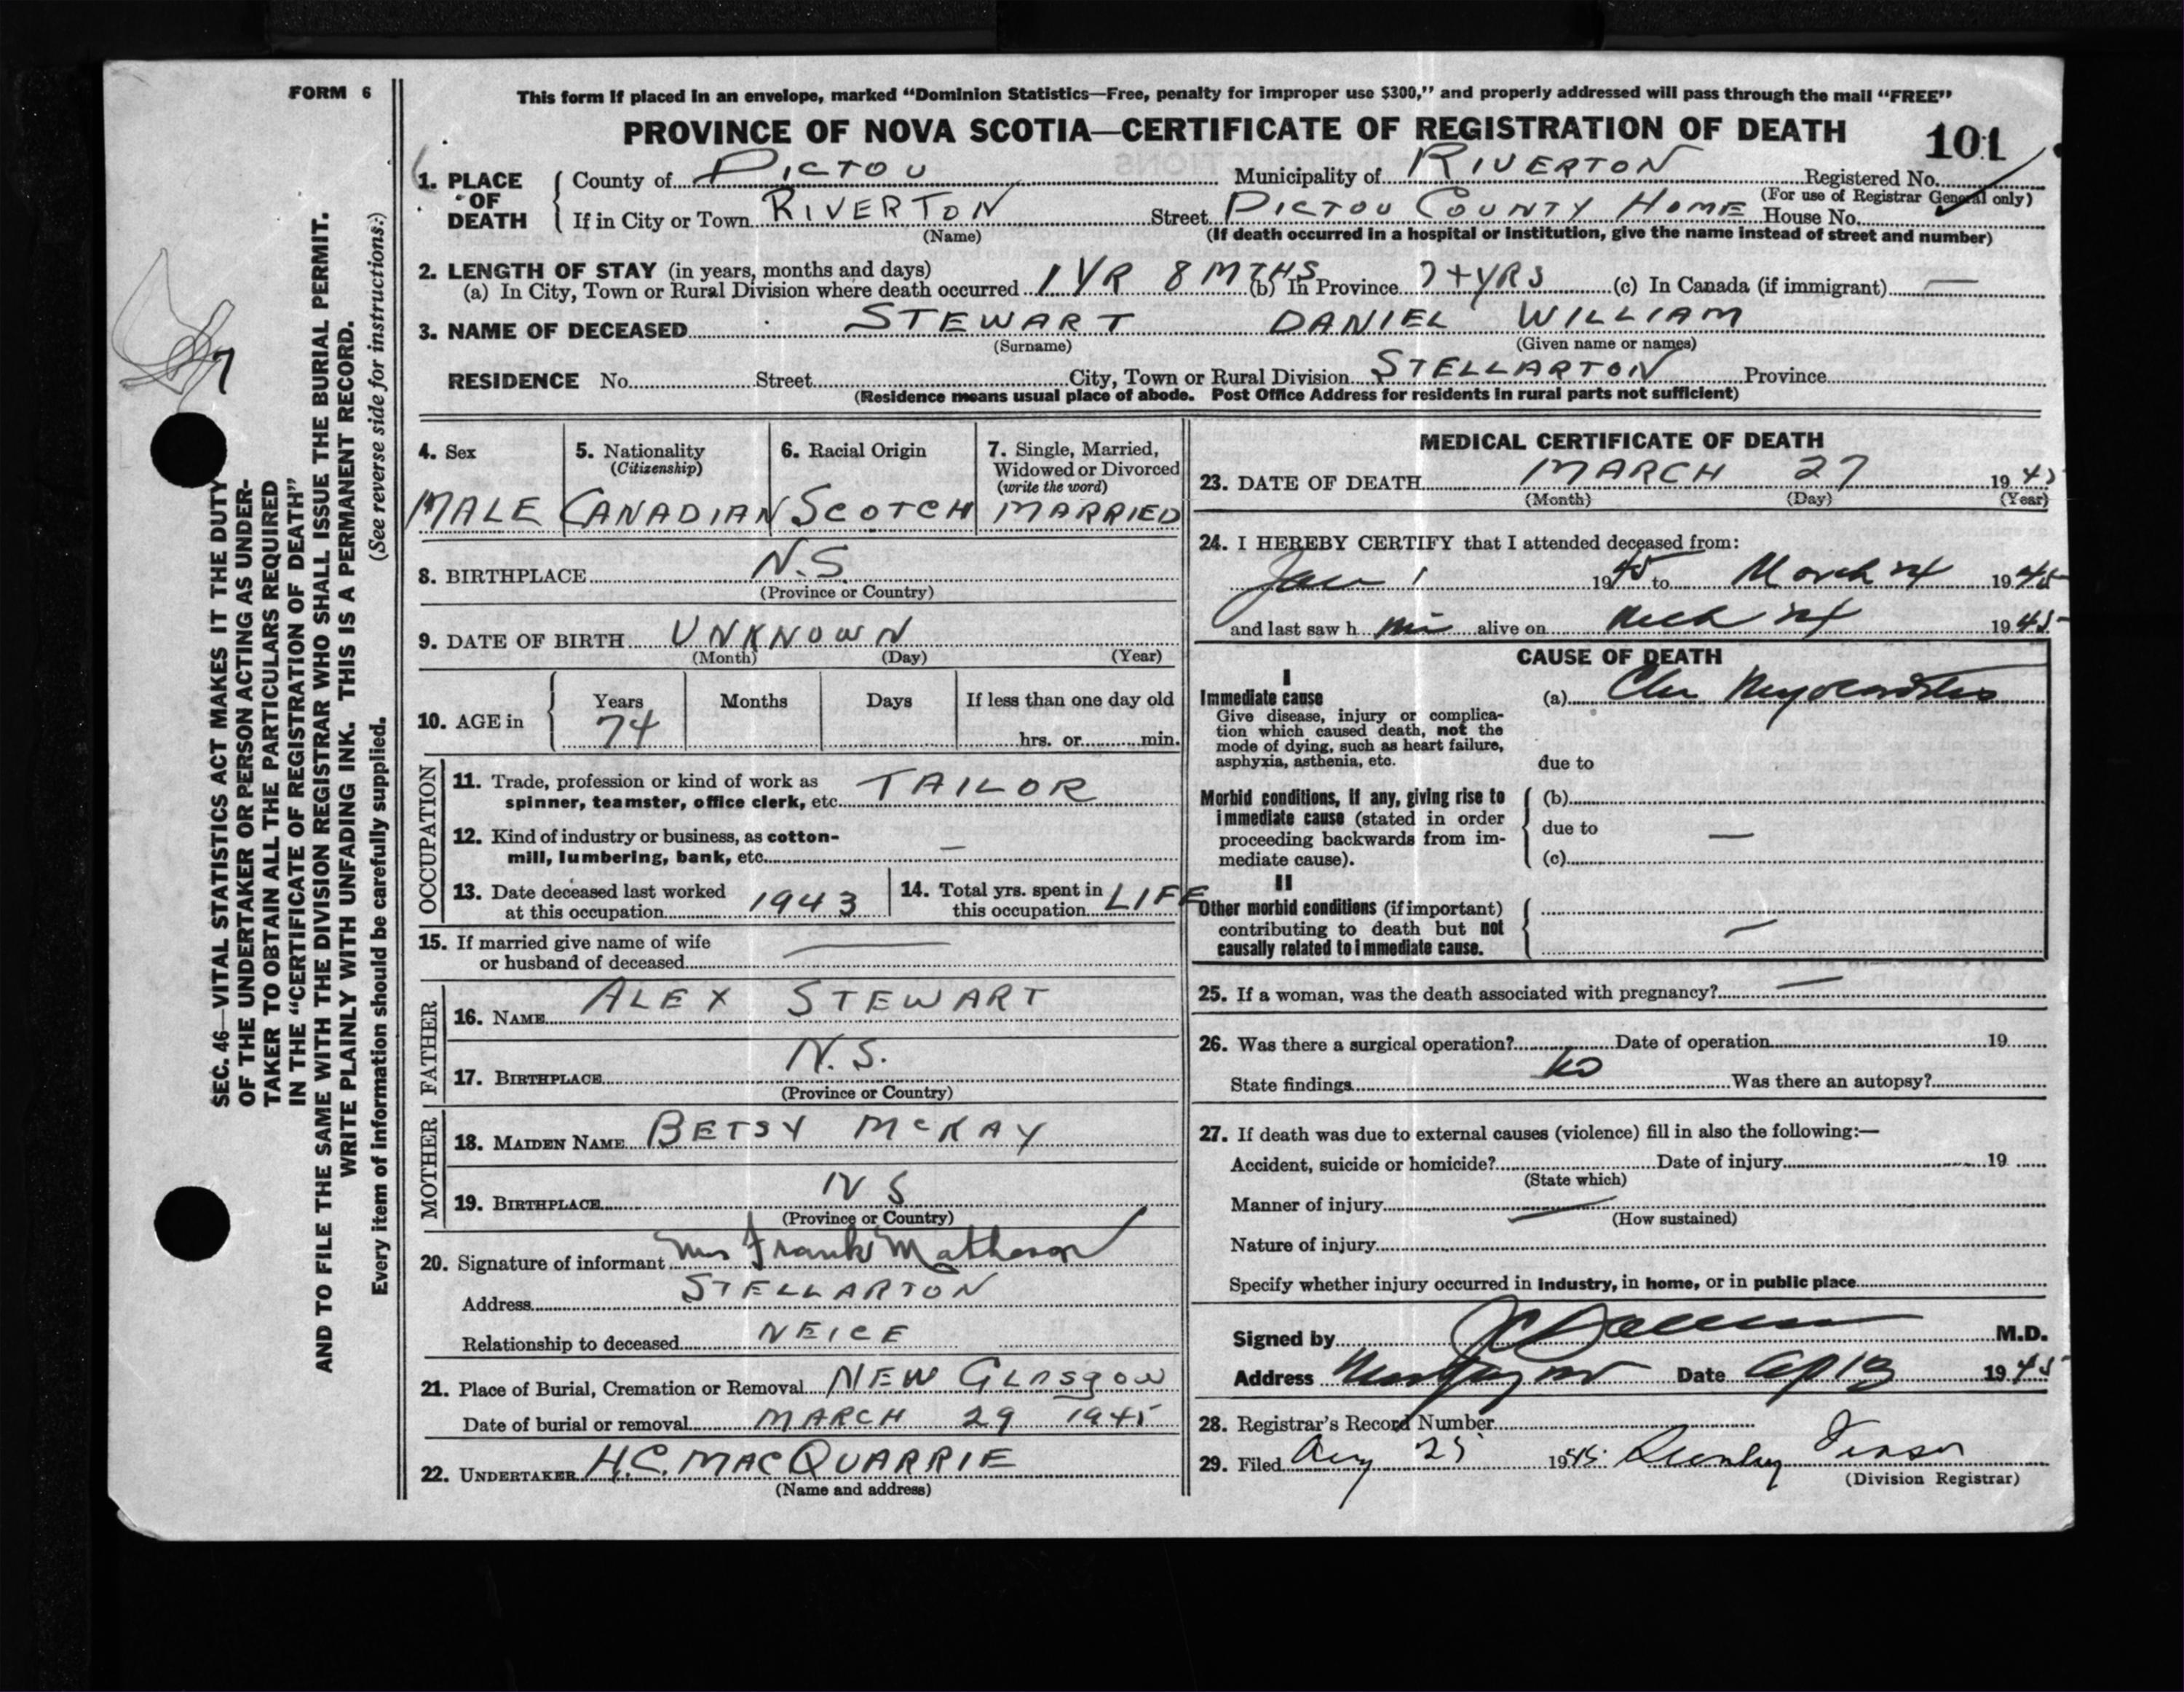 FORM 6
This form if placed in an envelope, marked “Dominion Statistics—Free, penalty for improper use $300,” and properly addressed will pass through the mail “FREE”
PROVINCE OF NOVA SCOTIA—CERTIFICATE OF REGISTRATION OF DEATH
101
1. PLACE OF DEATH
County of PICTOU Municipality of RIVERTON Registered No.
(For use of Registrar General only)
If in City or Town RIVERTON Street PICTOU COUNTY HOME House No.
(Name) (If death occurred in a hospital or institution, give the name instead of street and number)
2. LENGTH OF STAY (in years, months and days)
(a) In City, Town or Rural Division where death occurred 1 YR 8 MTHS (b) In Province 74 YRS (c) In Canada (if immigrant) —
3. NAME OF DECEASED STEWART DANIEL WILLIAM
(Surname) (Given name or names)
RESIDENCE No. Street City, Town or Rural Division STELLARTON Province
(Residence means usual place of abode. Post Office Address for residents in rural parts not sufficient)
4. Sex
MALE
5. Nationality
(Citizenship)
CANADIAN
6. Racial Origin
SCOTCH
7. Single, Married,
Widowed or Divorced
(write the word)
MARRIED
8. BIRTHPLACE N.S.
(Province or Country)
9. DATE OF BIRTH UNKNOWN
(Month) (Day) (Year)
10. AGE in
Years Months Days If less than one day old
74 hrs. or min.
OCCUPATION
11. Trade, profession or kind of work as
spinner, teamster, office clerk, etc. TAILOR
12. Kind of industry or business, as cotton-
mill, lumbering, bank, etc. —
13. Date deceased last worked
at this occupation 1943
14. Total yrs. spent in
this occupation LIFE
15. If married give name of wife
or husband of deceased —
FATHER
16. NAME ALEX STEWART
17. BIRTHPLACE N.S.
(Province or Country)
MOTHER
18. MAIDEN NAME BETSY McKAY
19. BIRTHPLACE N S
(Province or Country)
20. Signature of informant Mrs Frank Matheson
Address STELLARTON
Relationship to deceased NEICE
21. Place of Burial, Cremation or Removal NEW GLASGOW
Date of burial or removal MARCH 29 1945
22. UNDERTAKER H.C. MACQUARRIE
(Name and address)
MEDICAL CERTIFICATE OF DEATH
23. DATE OF DEATH MARCH 27 1945
(Month) (Day) (Year)
24. I HEREBY CERTIFY that I attended deceased from:
Jan 1 1945 to March 1945
and last saw h im alive on Mch 1945
CAUSE OF DEATH
I
Immediate cause
Give disease, injury or complica-
tion which caused death, not the
mode of dying, such as heart failure,
asphyxia, asthenia, etc.
(a) Chr Myocarditis
due to
Morbid conditions, if any, giving rise to
immediate cause (stated in order
proceeding backwards from im-
mediate cause).
(b)
due to —
(c)
II
Other morbid conditions (if important)
contributing to death but not
causally related to immediate cause.
—
25. If a woman, was the death associated with pregnancy? —
26. Was there a surgical operation? Date of operation 19
State findings no Was there an autopsy?
27. If death was due to external causes (violence) fill in also the following:—
Accident, suicide or homicide? Date of injury 19
(State which)
Manner of injury —
(How sustained)
Nature of injury
Specify whether injury occurred in industry, in home, or in public place
Signed by M.D.
Address Date 1945
28. Registrar's Record Number
29. Filed Aug 25 1945
(Division Registrar)
SEC. 46—VITAL STATISTICS ACT MAKES IT THE DUTY
OF THE UNDERTAKER OR PERSON ACTING AS UNDER-
TAKER TO OBTAIN ALL THE PARTICULARS REQUIRED
IN THE “CERTIFICATE OF REGISTRATION OF DEATH”
AND TO FILE THE SAME WITH THE DIVISION REGISTRAR WHO SHALL ISSUE THE BURIAL PERMIT.
WRITE PLAINLY WITH UNFADING INK. THIS IS A PERMANENT RECORD.
Every item of information should be carefully supplied. (See reverse side for instructions.)